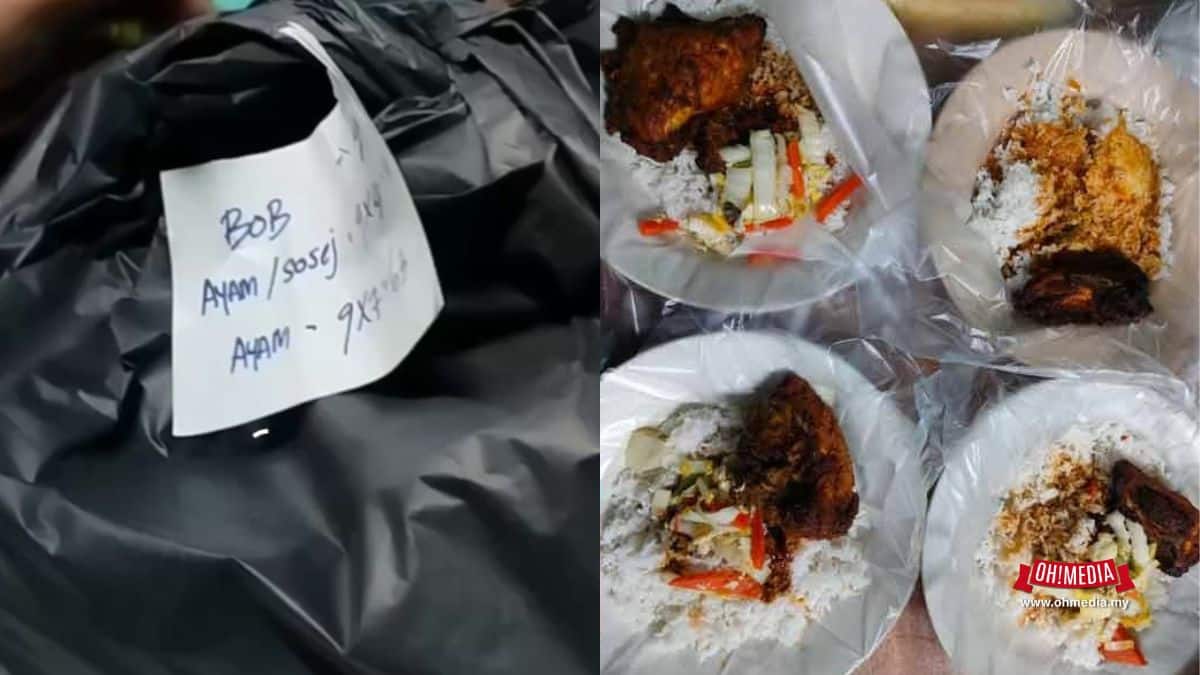 BOB
AYAM/SOSEJ
AYAM - 9X7
OH!MEDIA
www.ohmedia.my